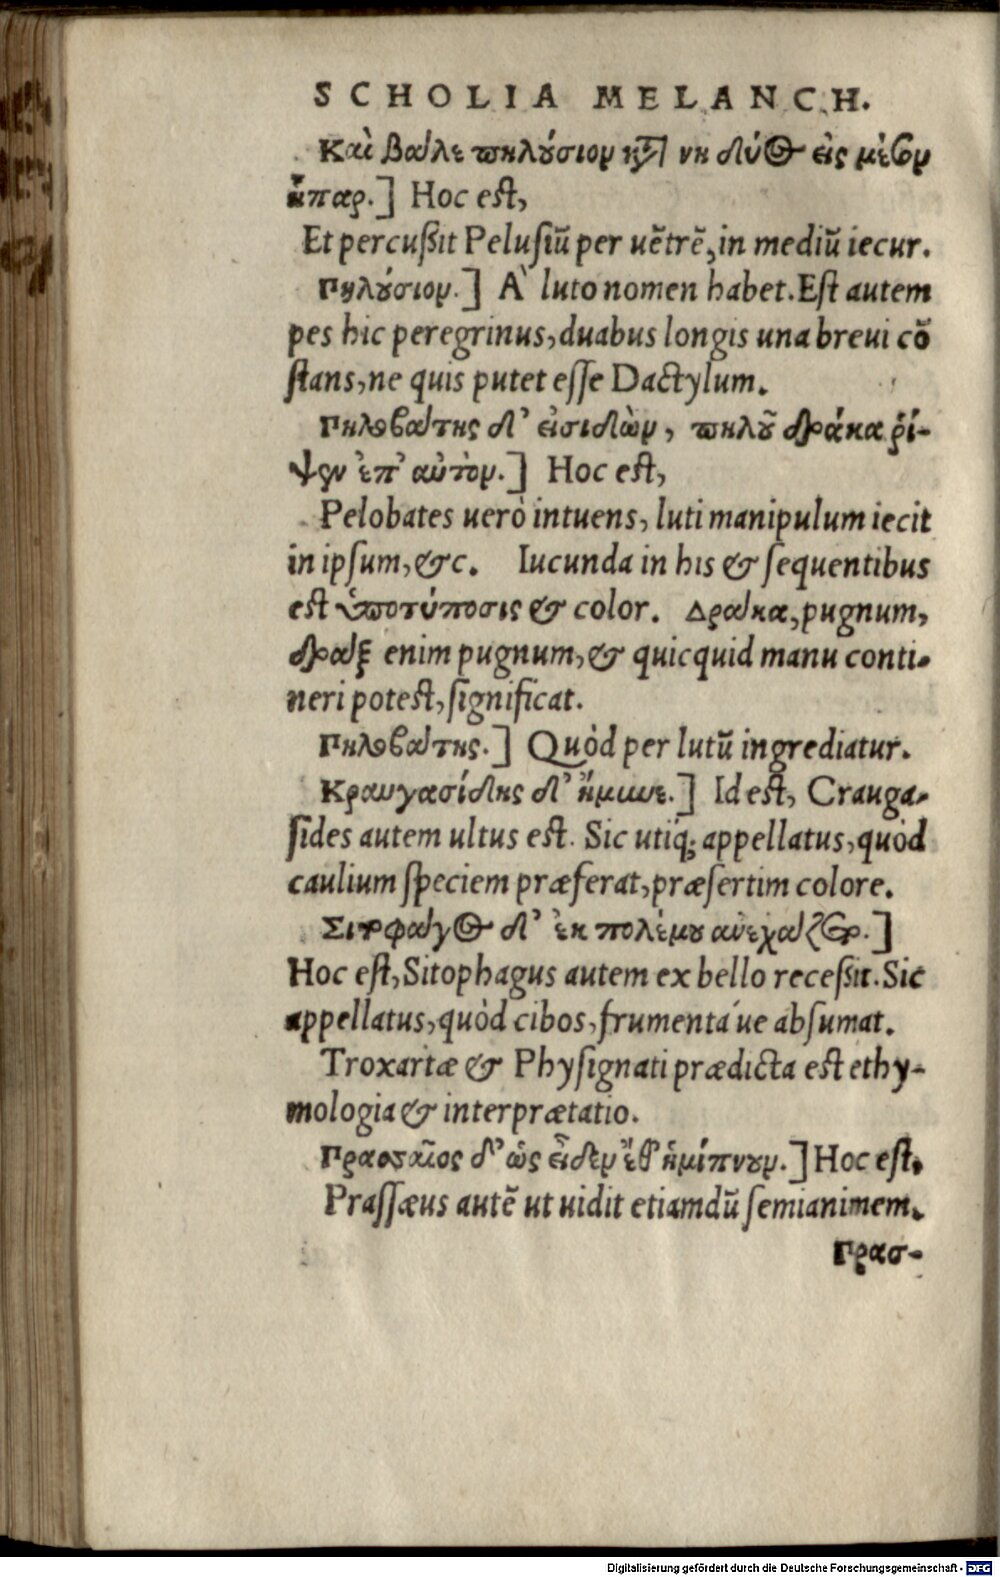 SCHOLIA MELANCH.
Καὶ βάλε πηλούσιον κατὰ νηδύος εἰς μέσον
ἧπαρ.] Hoc est,
Et percußit Pelusiū per uētrē, in mediū iecur.
Πηλούσιον.] A` luto nomen habet. Est autem
pes hic peregrinus, duabus longis una breui cō
stans, ne quis putet esse Dactylum.
Πηλοβάτης δ' εἰσιδὼν, πηλοῦ δράκα ῥί-
ψεν ἐπ' αὐτὸν.] Hoc est,
Pelobates uerò intuens, luti manipulum iecit
in ipsum, &c. Iucunda in his & sequentibus
est ὑποτύποσις & color. Δράκα, pugnum,
δράξ enim pugnum, & quicquid manu conti-
neri potest, significat.
Πηλοβάτης.] Quòd per lutū ingrediatur.
Κραυγασίδης δ' ἤμυνε.] Id est, Crauga-
sides autem ultus est. Sic utiq; appellatus, quòd
caulium speciem præferat, præsertim colore.
Σιτοφάγος δ' ἐκ πολέμου ἀνεχάζετο.]
Hoc est, Sitophagus autem ex bello receßit. Sic
appellatus, quòd cibos, frumentá ue absumat.
Troxartæ & Physignati prædicta est ethy-
mologia & interprætatio.
Πρασσαῖος δ' ὡς εἶδεν ἔθ' ἡμίπνουν.] Hoc est,
Prassæus autē ut uidit etiamdū semianimem.
Πρασ-
Digitalisierung gefördert durch die Deutsche Forschungsgemeinschaft - DFG